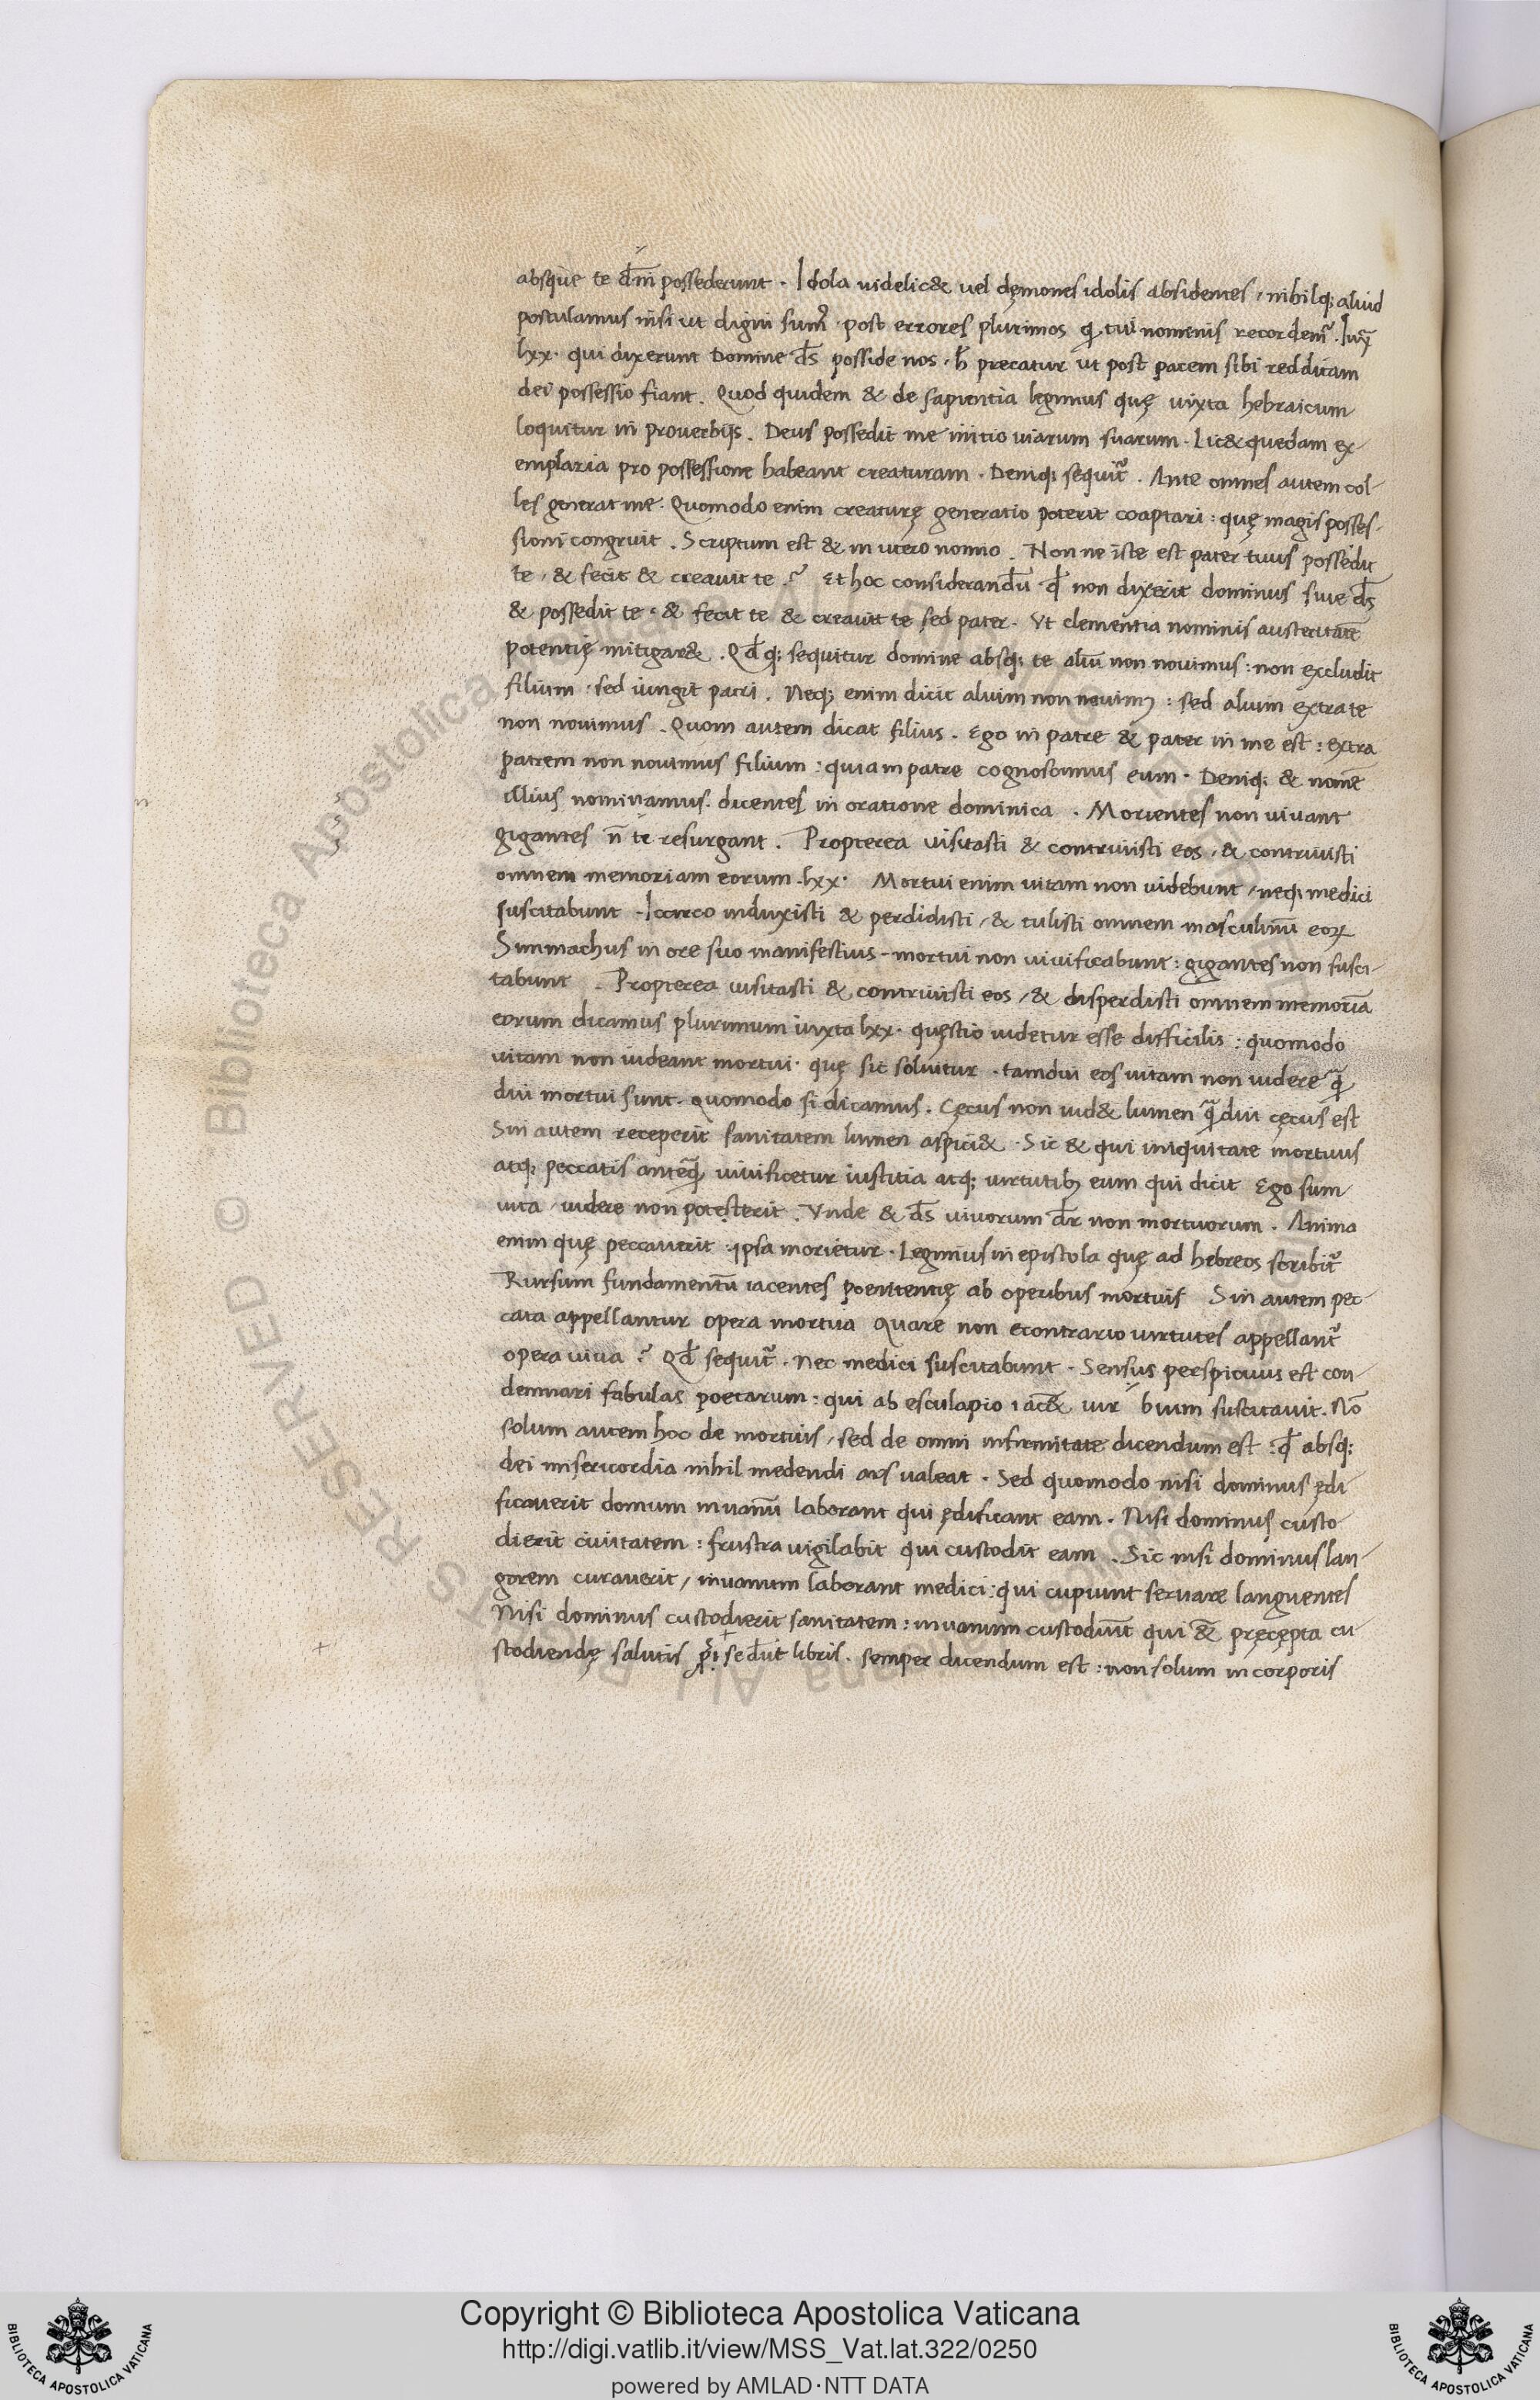 absque te dn̄i possederunt . Idola uidelic& uel dęmones idolis absidentes , nihilq; aliud
postulamus nisi ut digni sum᷒ post errores plurimos q̨ tui nomenis recordem̃ . Iux̃
lxx . qui dixerunt Domine d̄s posside nos . h̄ precatur ut post pacem sibi redditam
dei possessio fiant . Quod quidem & de sapientia legimus quę iuxta hebraicum
loquitur in prouerbijs . Deus possedit me initio uiarum suarum . Lic& quedam ex-
emplaria pro possessione habeant creaturam . Deniq; sequit̃ . Ante omnes autem col-
les generat me . Quomodo enim creaturę generatio poterit coaptari : quę magis posses-
sioni congruit . Scriptum est & in utero nomio . Non ne iste est pater tuus possedit
te , & fecit & creauit te ? Et hoc considerandū qd̄ non dixerit dominus siue d̄s
& possedit te & fecit te & creauit te sed pater . Vt clementia nominis austeritatē
potentię mitigar& . Qd̄q; sequitur domine absq; te aliū non nouimus : non excludit
filium . sed iungit patri . Neq; enim dicit alium non nouim᷒ : sed alium extra te
non nouimus . Quom autem dicat filius . Ego in patre & pater in me est : extra
patrem non nouimus filium : quia in patre cognoscimus eum . Deniq; & nomē
illius nominamus . dicentes in oratione dominica . Morientes non uiuant
gigantes n̄ te resurgant . Propterea uisitasti & contriuisti eos , & contriuisti
omnem memoriam eorum . lxx . Mortui enim uitam non uidebunt , neq; medici
suscitabunt . Iccirco induxisti & perdidisti , & tulisti omnem masculinū eoꝝ
Simmachus in ore suo manifestius - mortui non uiuificabunt : gigantes non susci-
tabunt . Propterea uisitasti & contriuisti eos , & disperdisti omnem memoriā
eorum dicamus plurimum iuxta lxx . quęstio uidetur esse difficilis : quomodo
uitam non uideant mortui . quę sic soluitur . tamdiu eos uitam non uidere q̃
diu mortui sunt . quomodo si dicamus . Cęcus non uid& lumen q̃ diu cęcus est
Sin autem receperit sanitatem lumen aspici& . Sic & qui iniquitate mortuus
atq; peccatis anteq̃ uiuificetur iustitia atq; uirtutib; eum qui dicit Ego sum
uita , uidere non potesterit . Vnde & d̄s uiuorum dr̄ non mortuorum . Anima
enim quę peccauerit . ipsa morietur . Legimus in epistola quę ad hebreos scribit̃
Rursum fundamentū iacentes poenitentię ab operibus mortuis Sin autem pec-
cata appellantur opera mortua Quare non econtrario uirtutes appellant̃
opera uiua ? Qd̄ sequit̃ . Nec medici suscitabunt . Sensus perspicuus est con-
demnari fabulas poetarum : qui ab esculapio iac& uir bium suscitauit . Nō
solum autem hoc de mortuis , sed de omni infirmitate dicendum est : qd̄ absq;
dei misericordia nihil medendi ars ualeat . Sed quomodo nisi dominus ędi
ficauerit domum inuanū laborant qui ędificant eam . Nisi dominus custo
dierit ciuitatem : frustra uigilabit qui custodit eam . Sic nisi dominus lan-
gorem curauerit , inuanum laborant medici : qui cupiunt seruare languentes
Nisi dominus custodierit sanitatem : inuanum custodiūt qui & pręcępta cu
stodiendę salutis libris . semper dicendum est : non solum in corporis
+
© Biblioteca Apostolica Vaticana
Copyright © Biblioteca Apostolica Vaticana
http://digi.vatlib.it/view/MSS_Vat.lat.322/0250
powered by AMLAD·NTT DATA
BIBLIOTECA APOSTOLICA VATICANA
BIBLIOTECA APOSTOLICA VATICANA